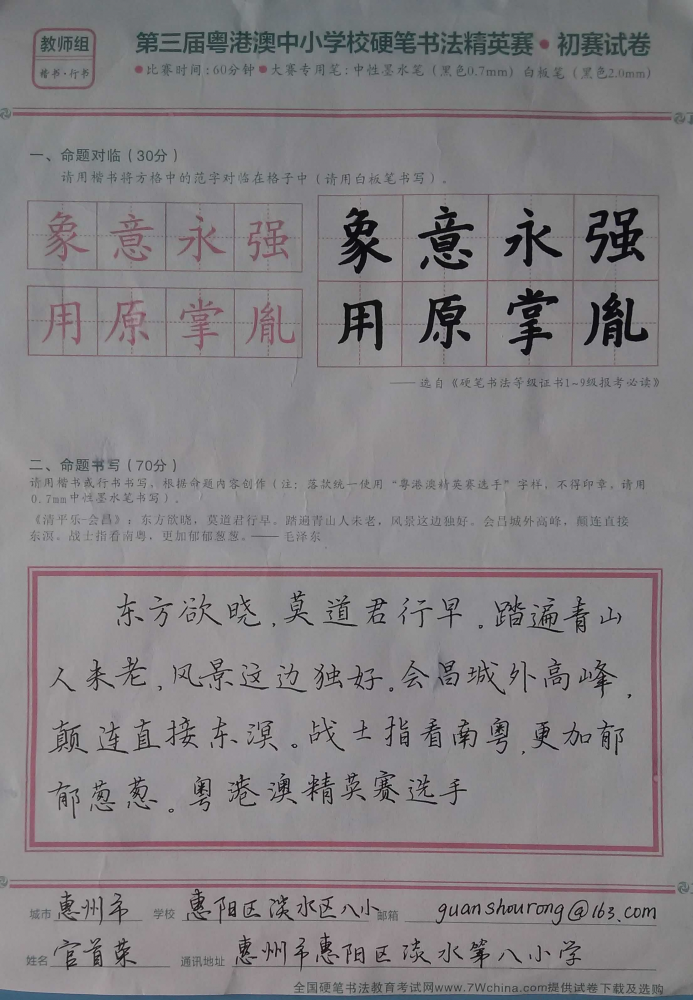 教师组
楷书·行书
第三届粤港澳中小学校硬笔书法精英赛·初赛试卷
●比赛时间:60分钟●大赛专用笔:中性墨水笔(黑色0.7mm)白板笔(黑色2.0mm)
一、命题对临(30分)
请用楷书将方格中的范字对临在格子中(请用白板笔书写)。
象意永强
用原掌胤
象意永强
用原掌胤
——选自《硬笔书法等级证书1~9级报考必读》
二、命题书写(70分)
请用楷书或行书书写。根据命题内容创作(注:落款统一使用“粤港澳精英赛选手”字样,不得印章。请用
0.7mm中性墨水笔书写)。
《清平乐·会昌》:东方欲晓,莫道君行早。踏遍青山人未老,风景这边独好。会昌城外高峰,颠连直接
东溟。战士指看南粤,更加郁郁葱葱。——毛泽东
东方欲晓,莫道君行早。踏遍青山
人未老,风景这边独好。会昌城外高峰,
颠连直接东溟。战士指看南粤,更加郁
郁葱葱。粤港澳精英赛选手
城市 惠州市 学校 惠阳区淡水区八小 邮箱 guanshourong@163.com
姓名 官首荣 通讯地址 惠州市惠阳区淡水第八小学
全国硬笔书法教育考试网www.7Wchina.com提供试卷下载及选购